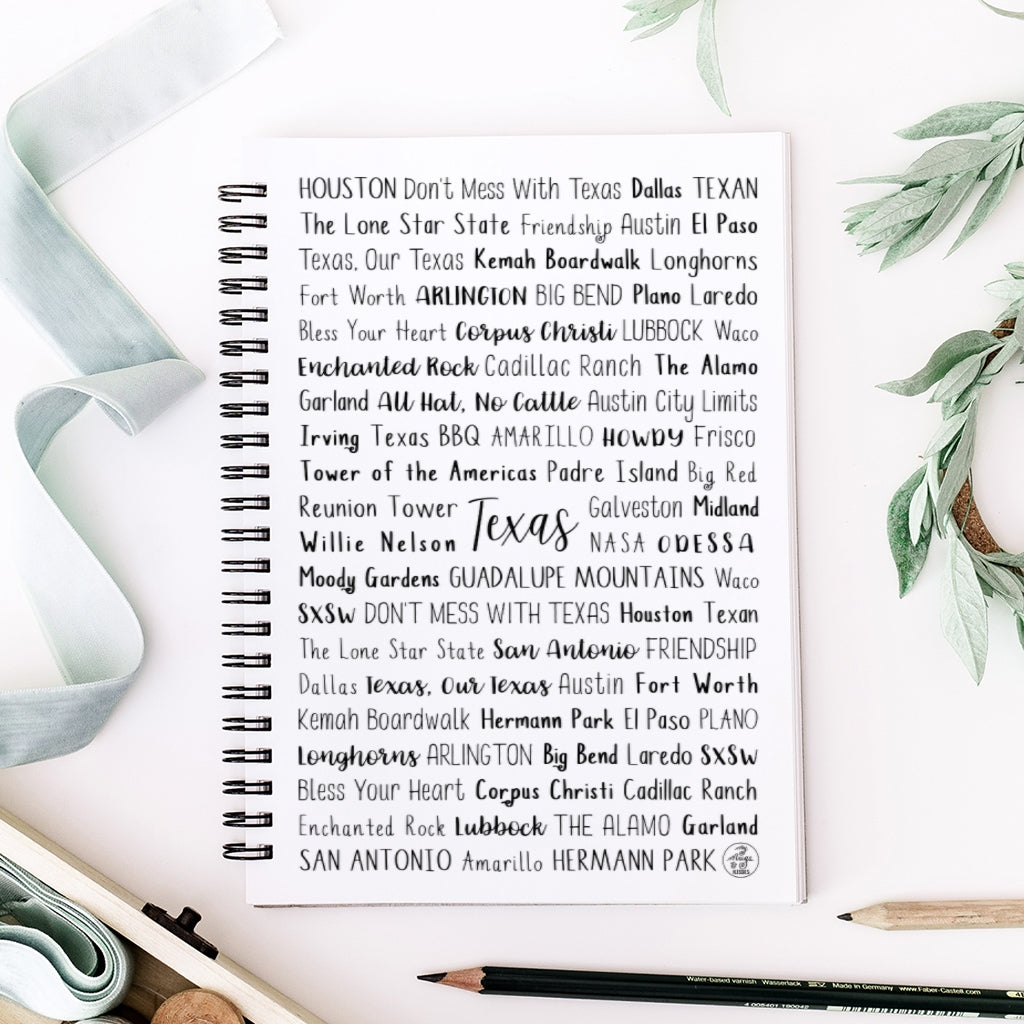 HOUSTON Don't Mess With Texas Dallas TEXAN
The Lone Star State Friendship Austin El Paso
Texas, Our Texas Kemah Boardwalk Longhorns
Fort Worth ARLINGTON BIG BEND Plano Laredo
Bless Your Heart Corpus Christi LUBBOCK Waco
Enchanted Rock Cadillac Ranch The Alamo
Garland All Hat, No Cattle Austin City Limits
Irving Texas BBQ AMARILLO HOWDY Frisco
Tower of the Americas Padre Island Big Red
Reunion Tower Texas Galveston Midland
Willie Nelson NASA ODESSA
Moody Gardens GUADALUPE MOUNTAINS Waco
SXSW DON'T MESS WITH TEXAS Houston Texan
The Lone Star State San Antonio FRIENDSHIP
Dallas Texas, Our Texas Austin Fort Worth
Kemah Boardwalk Hermann Park El Paso PLANO
Longhorns ARLINGTON Big Bend Laredo SXSW
Bless Your Heart Corpus Christi Cadillac Ranch
Enchanted Rock Lubbock THE ALAMO Garland
SAN ANTONIO Amarillo HERMANN PARK
KISSES
Water-based varnish Wasserlack Made in Germany www.Faber-Castell.com
4 005401 190042